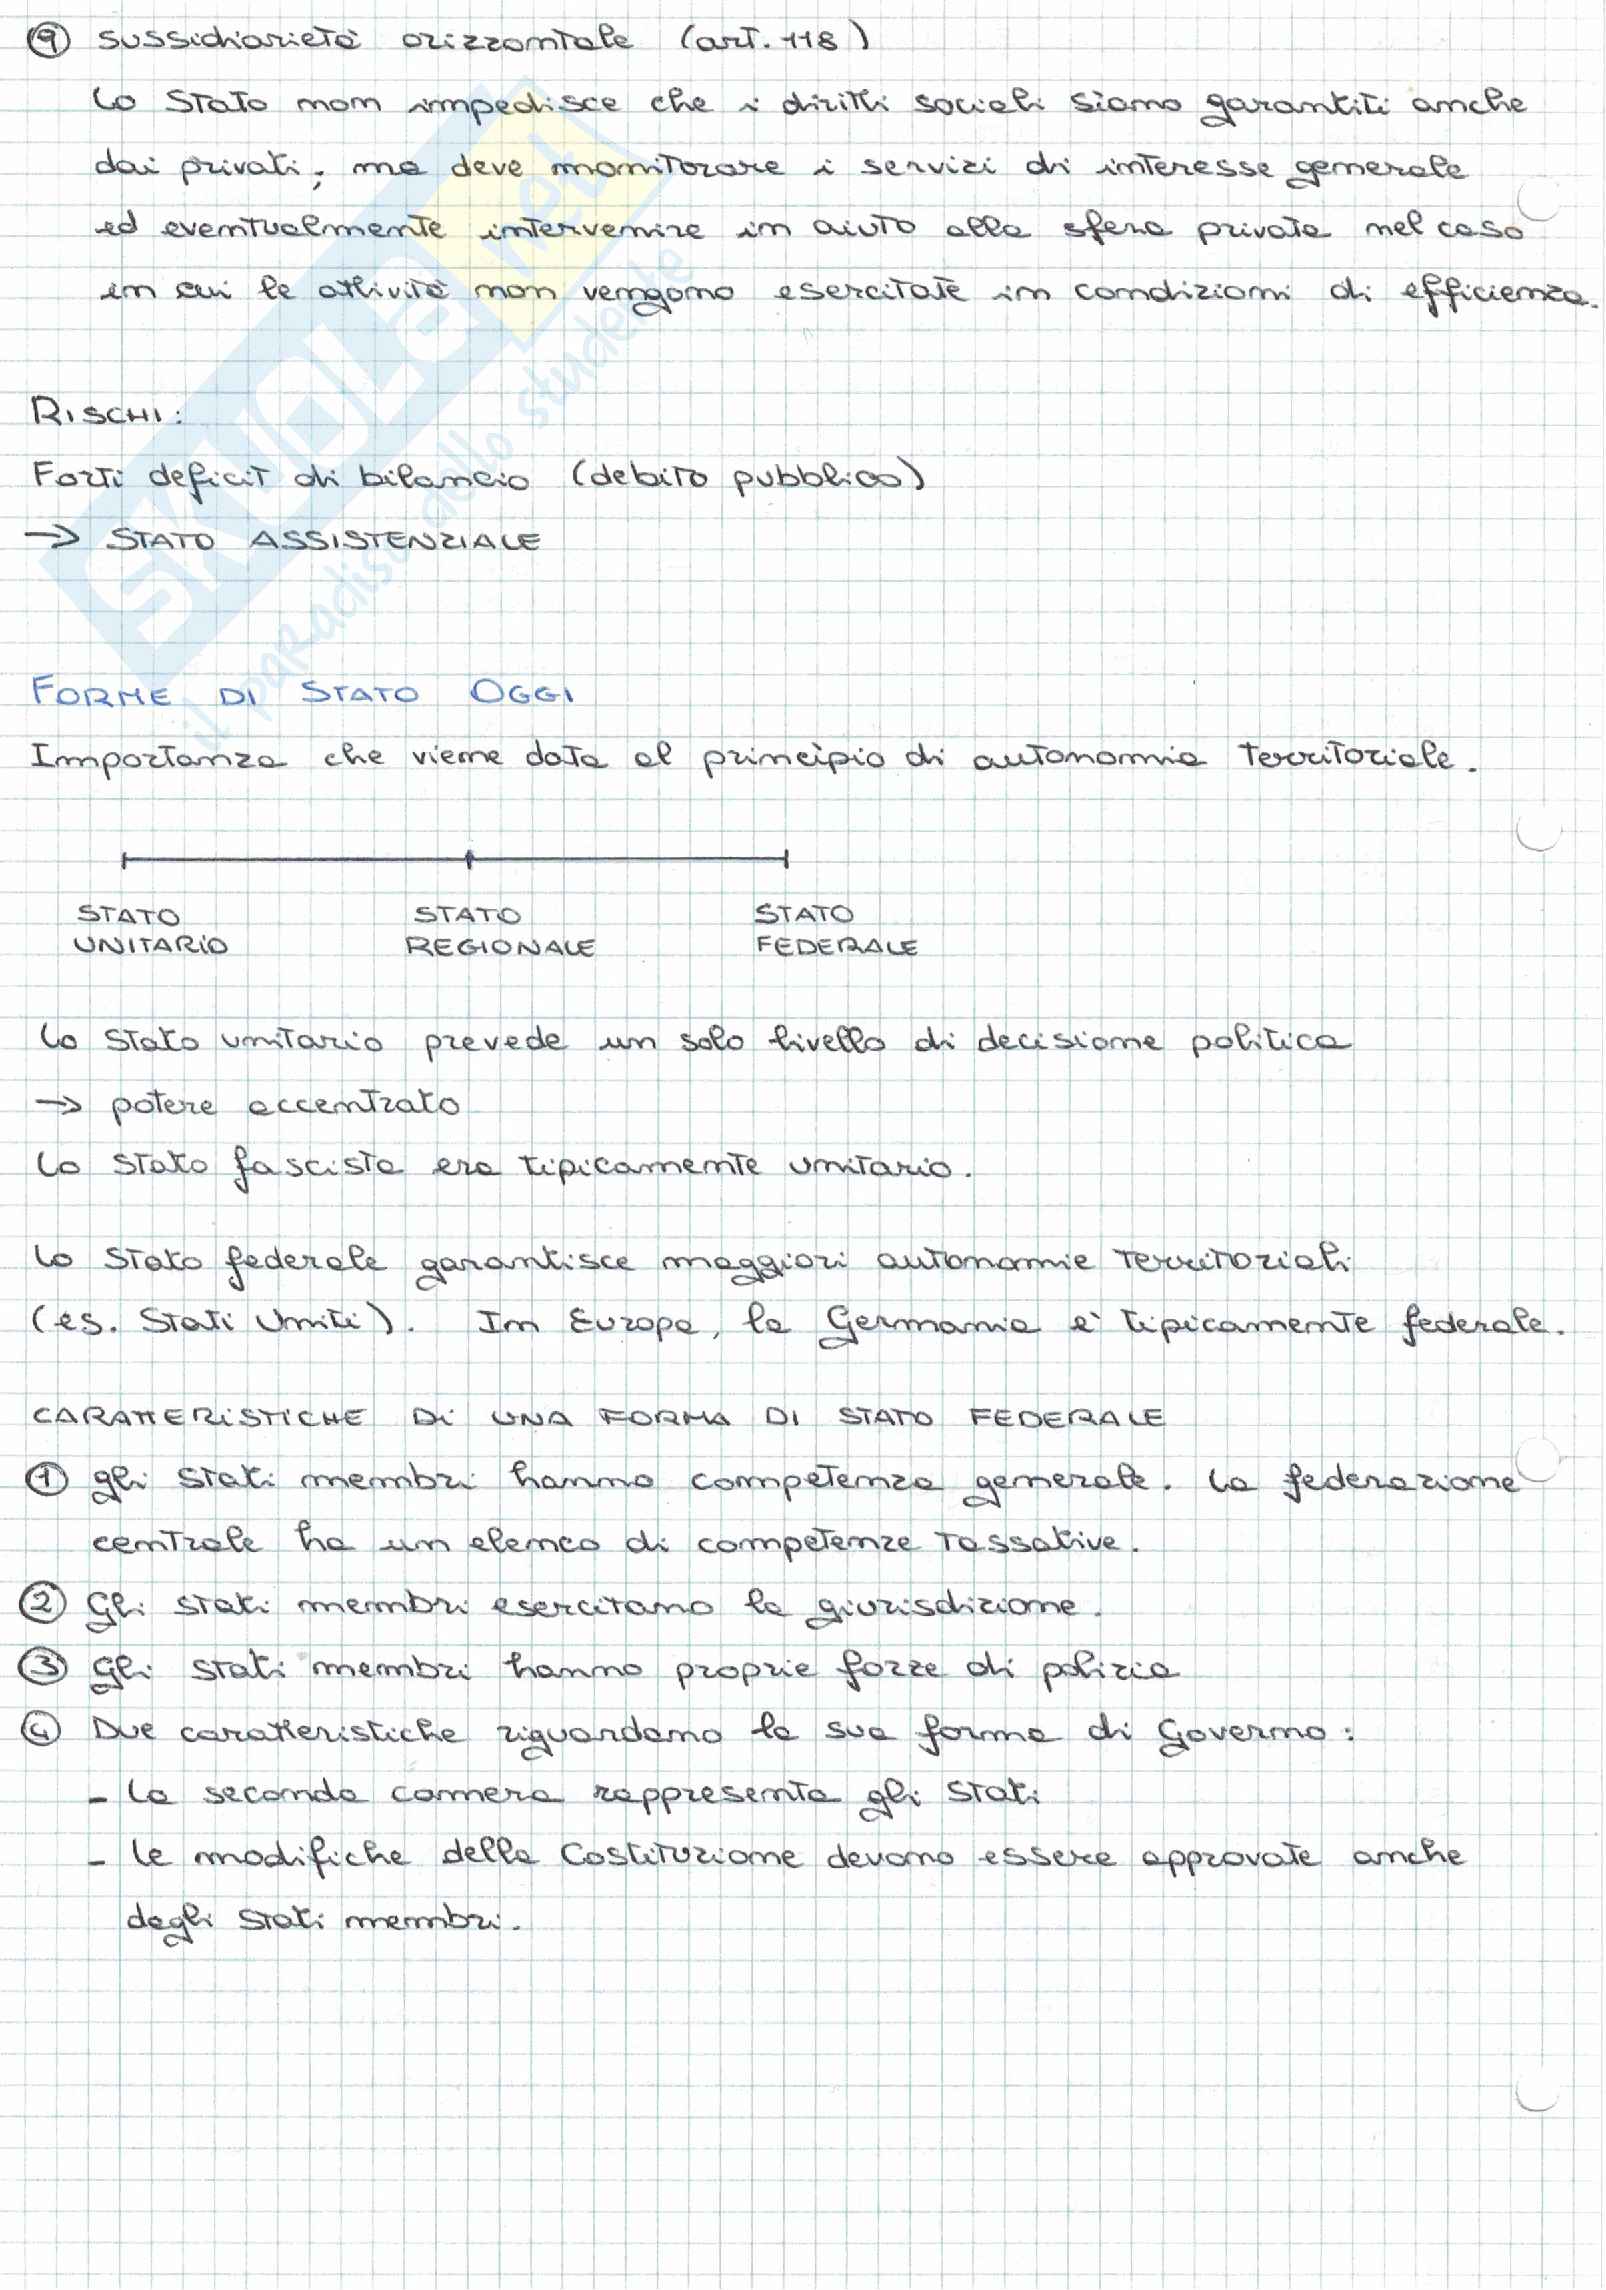 ⑨ sussidiarietà orizzontale (art. 118)
Lo Stato non impedisce che i diritti sociali siano garantiti anche
dai privati; ma deve monitorare i servizi di interesse generale
ed eventualmente intervenire in aiuto alla sfera privata nel caso
in cui le attività non vengono esercitate in condizioni di efficienza.
RISCHI:
Forti deficit di bilancio (debito pubblico)
→ STATO ASSISTENZIALE
FORME DI STATO OGGI
Importanza che viene data al principio di autonomia territoriale.
STATO STATO STATO
UNITARIO REGIONALE FEDERALE
Lo Stato unitario prevede un solo livello di decisione politica
→ potere accentrato
Lo Stato fascista era tipicamente unitario.
Lo Stato federale garantisce maggiori autonomie territoriali
(es. Stati Uniti). In Europa, la Germania è tipicamente federale.
CARATTERISTICHE DI UNA FORMA DI STATO FEDERALE
① gli stati membri hanno competenza generale. La federazione
centrale ha un elenco di competenze tassative.
② Gli stati membri esercitano la giurisdizione.
③ Gli stati membri hanno proprie forze di polizia
④ Due caratteristiche riguardano la sua forma di Governo:
- La seconda camera rappresenta gli Stati
- Le modifiche della Costituzione devono essere approvate anche
dagli Stati membri.
SKUOLA.net
il paradiso dello studente